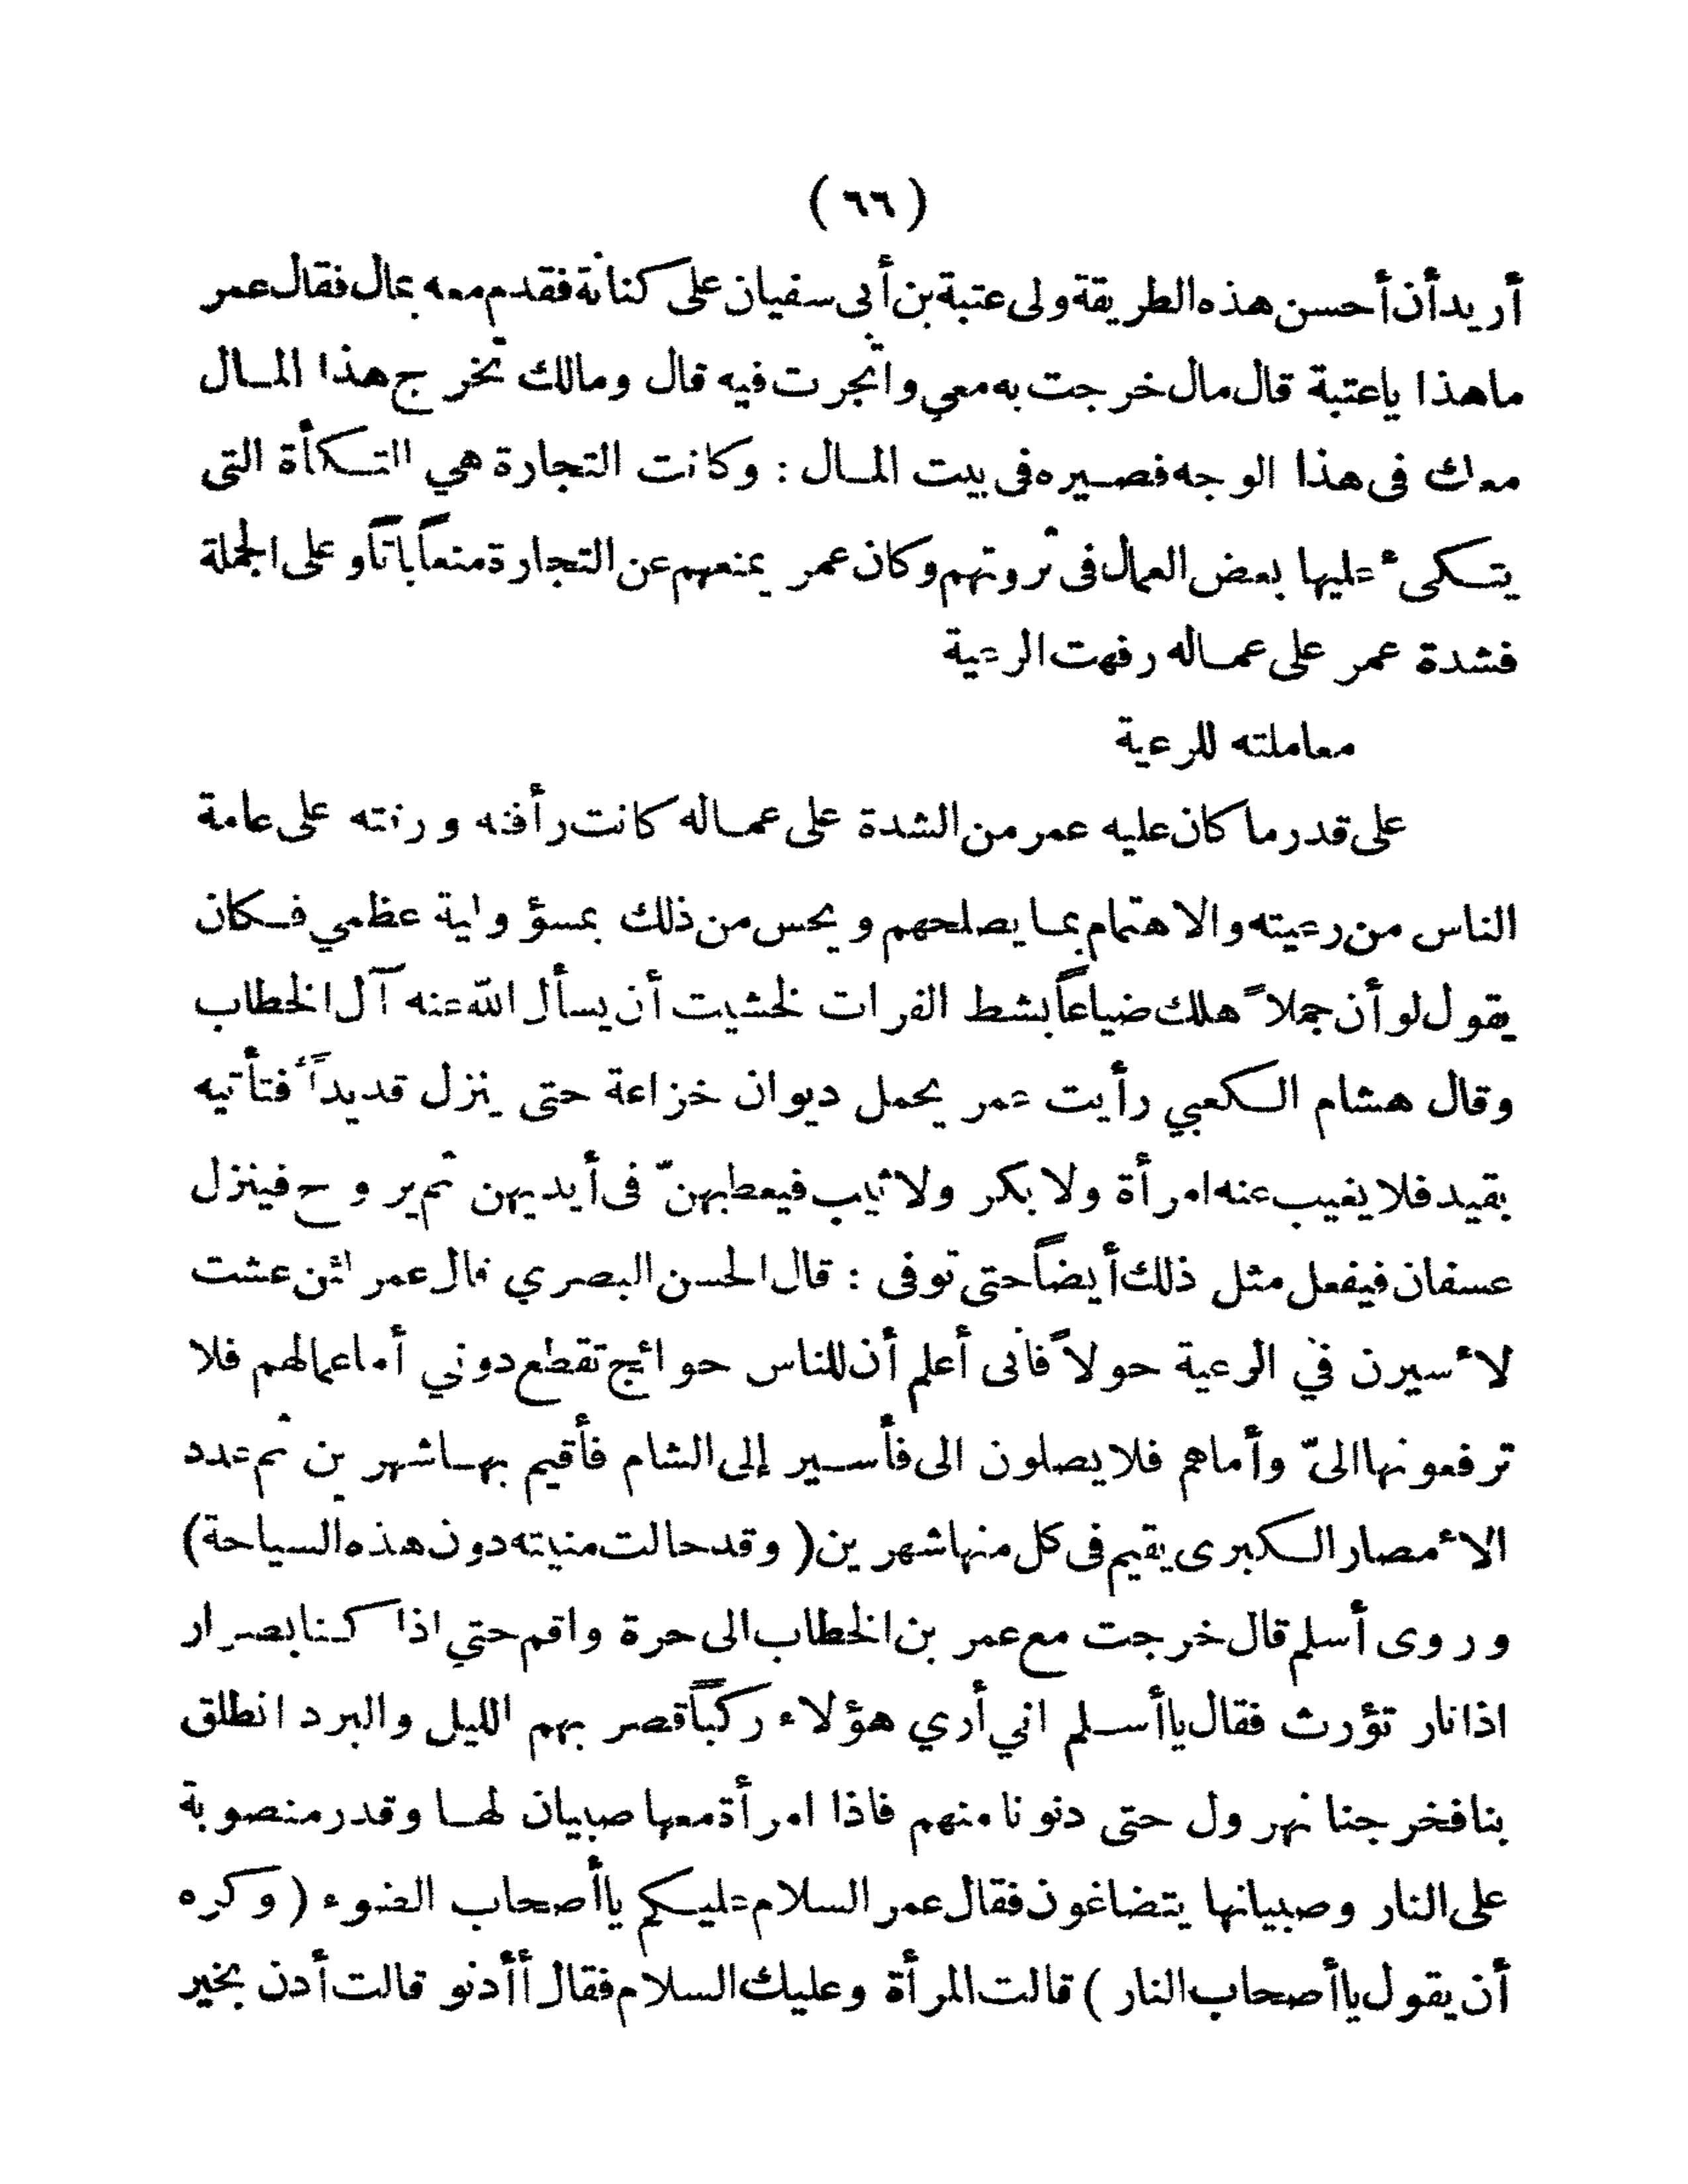 ( ٦٦ )
أريد أن أحسن هذه الطريقة ولى عتبة بن أبى سفيان على كنانة فقدم معه بمال فقال عمر
ماهذا ياعتبة قال مال خرجت به معي واتجرت فيه قال ومالك تخرج هذا المال
معك فى هذا الوجه فصيره فى بيت المال : وكانت التجارة هي التكأة التى
يتكىء عليها بعض العمال فى ثروتهم وكان عمر يمنعهم عن التجارة منعاً باتاً وعلى الجملة
فشدة عمر على عماله رفهت الرعية
معاملته للرعية
على قدر ما كان عليه عمر من الشدة على عماله كانت رأفته ورقته على عامة
الناس من رعيته والاهتمام بما يصلحهم ويحس من ذلك بمسؤولية عظمي فكان
يقول لو أن جملاً هلك ضياعاً بشط الفرات لخشيت أن يسأل الله عنه آل الخطاب
وقال هشام الكعبي رأيت عمر يحمل ديوان خزاعة حتى ينزل قديداً فتأتيه
بقيد فلا يغيب عنه امرأة ولا بكر ولا ثيب فيعطيهنّ فى أيديهن ثم يروح فينزل
عسفان فيفعل مثل ذلك أيضاً حتى توفى : قال الحسن البصري قال عمر لئن عشت
لأسيرن في الرعية حولاً فانى أعلم أن للناس حوائج تقطع دوني أما عمالهم فلا
ترفعونها الىّ وأماهم فلا يصلون الى فأسير إلى الشام فأقيم بها شهرين ثم عدد
الأمصار الكبرى يقيم فى كل منها شهرين ( وقد حالت منيته دون هذه السياحة )
وروى أسلم قال خرجت مع عمر بن الخطاب الى حرة واقم حتي اذا كنا بصرار
اذا نار تؤرث فقال ياأسلم اني أري هؤلاء ركباً قصر بهم الليل والبرد انطلق
بنا فخرجنا نهرول حتى دنونا منهم فاذا امرأة معها صبيان لها وقدر منصوبة
على النار وصبيانها يتضاغون فقال عمر السلام عليكم ياأصحاب الضوء ( وكره
أن يقول ياأصحاب النار ) قالت المرأة وعليك السلام فقال أأدنو قالت أدن بخير